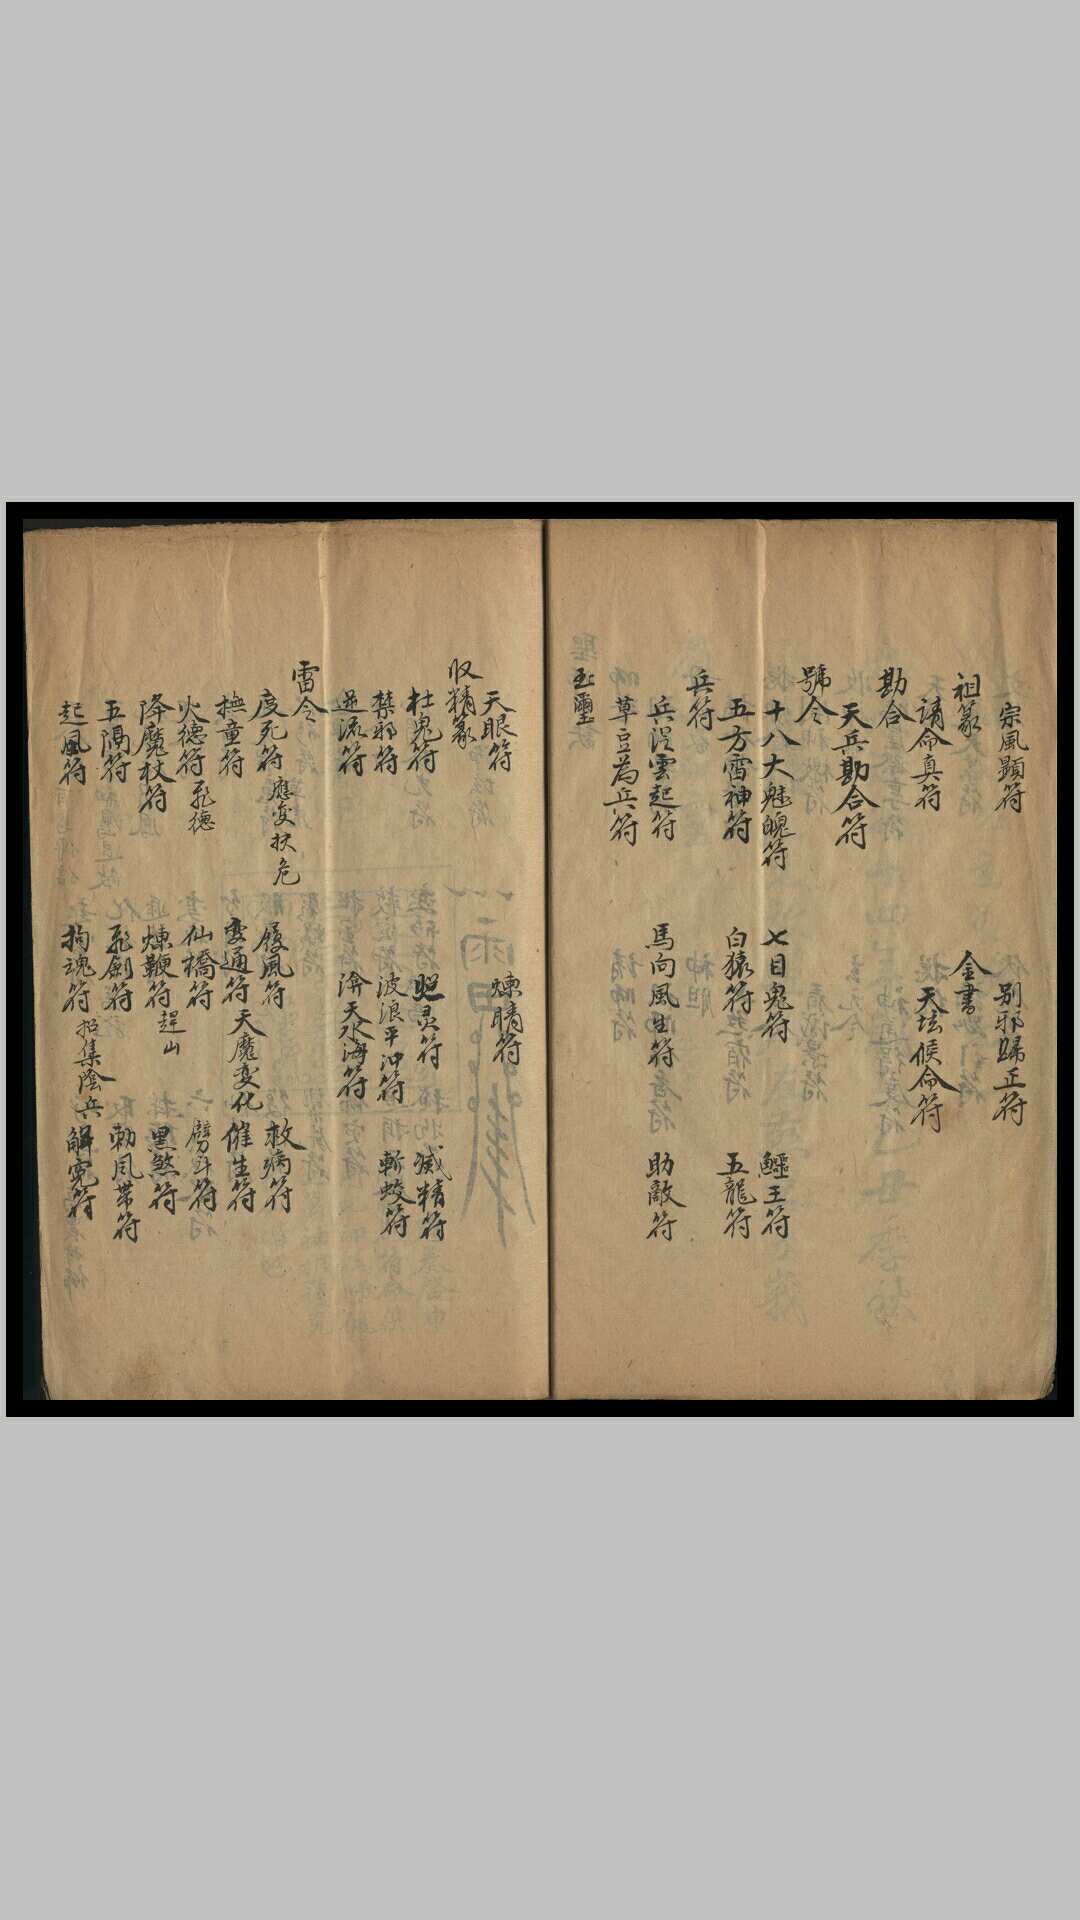 宗風顕符 别邪歸正符
祖篆 金書
请命真符 天坛候命符
勘合
天兵勘合符
號令
十八大魁魄符 七目鬼符 鱷王符
五方雷神符 白猿符 五龍符
兵符
兵从雲起符 馬向風生符 助敵符
草豆為兵符
玉璽
天眼符 煉睛符
収精篆
杜鬼符 照灵符 滅精符
禁邪符 波浪平冲符 斬蛟符
逆流符 済天水海符
雷令
度死符 應变扶危 履風符 救病符
撫童符 变通符 天魔变化 催生符
火德符 飛德 仙橋符 劈斗符
降魔杖符 煉鞭符 趕山 黑煞符
五隔符 飛劍符 勅風帯符
起風符 拘魂符 招集陰兵 解寃符